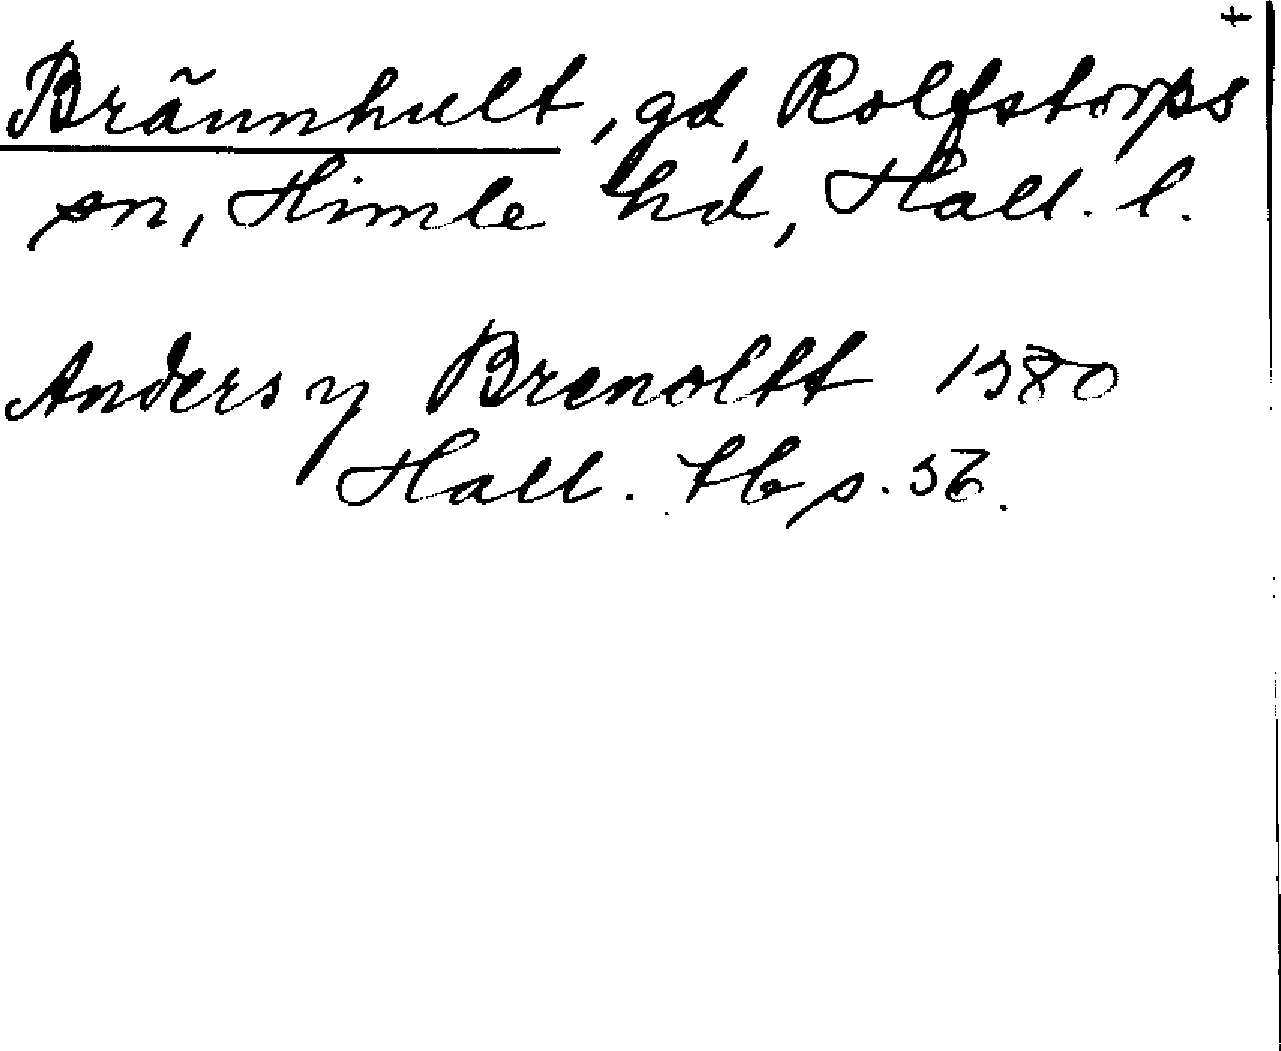 +
Brännhult, gd, Rolfstorps
sn, Himle hd, Hall. l.
Anders y Brenoltt 1580
Hall. tb p. 56.